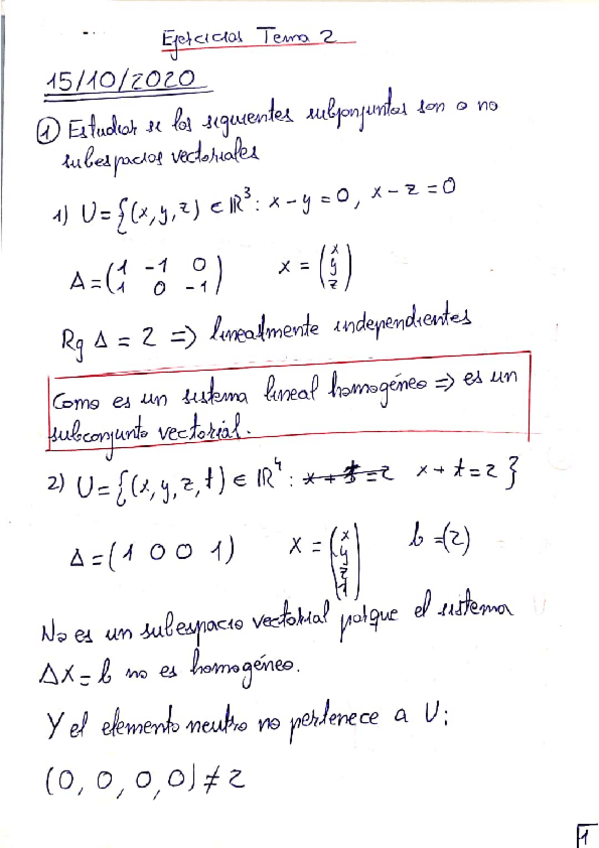 Ejercicios Tema 2
15/10/2020
① Estudiar si los siguientes subconjuntos son o no
subespacios vectoriales
1) U={(x,y,z) ∈ ℝ³: x-y=0, x-z=0
A=(1 -1 0
1 0 -1) x=(x
y
z)
Rg A = 2 => linealmente independientes
Como es un sistema lineal homogéneo => es un
subconjunto vectorial.
2) U={(x,y,z,t) ∈ ℝ⁴: x+t=2 x+t=2}
A=(1 0 0 1) X=(x
y
z
t) b=(2)
No es un subespacio vectorial porque el sistema
AX=b no es homogéneo.
Y el elemento neutro no pertenece a U:
(0,0,0,0)≠2
1